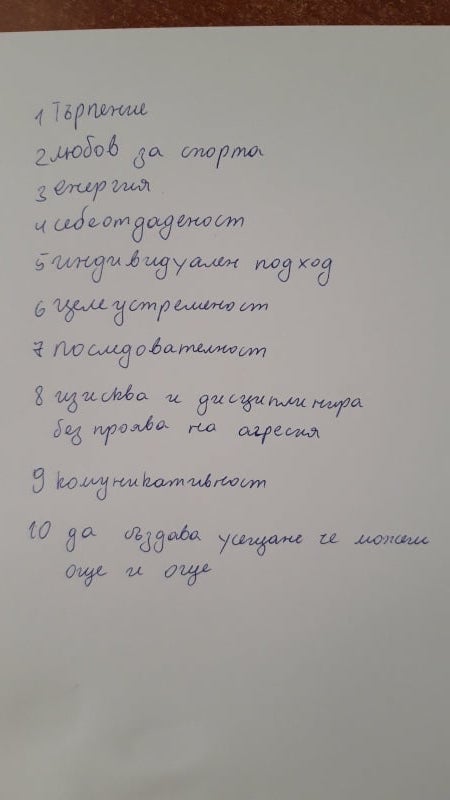 1 Търпение
2 любов за спорта
3 енергия
4 себеотдаденост
5 индивидуален подход
6 целеустременост
7 последователност
8 изисква и дисциплинира
без проява на агресия
9 комуникативност
10 да създава усещане че можеш
още и още